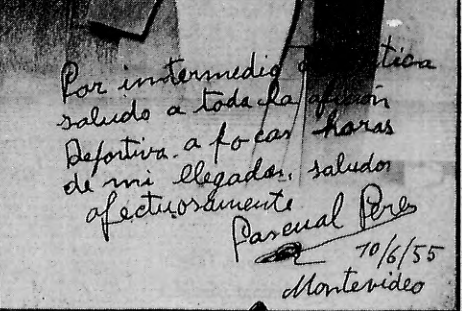 Por intermedio
saludo a toda la afición
Deportiva. a pocas horas
de mi llegada. saludos
afectuosamente
Pascual Perez
10/6/55
Montevideo